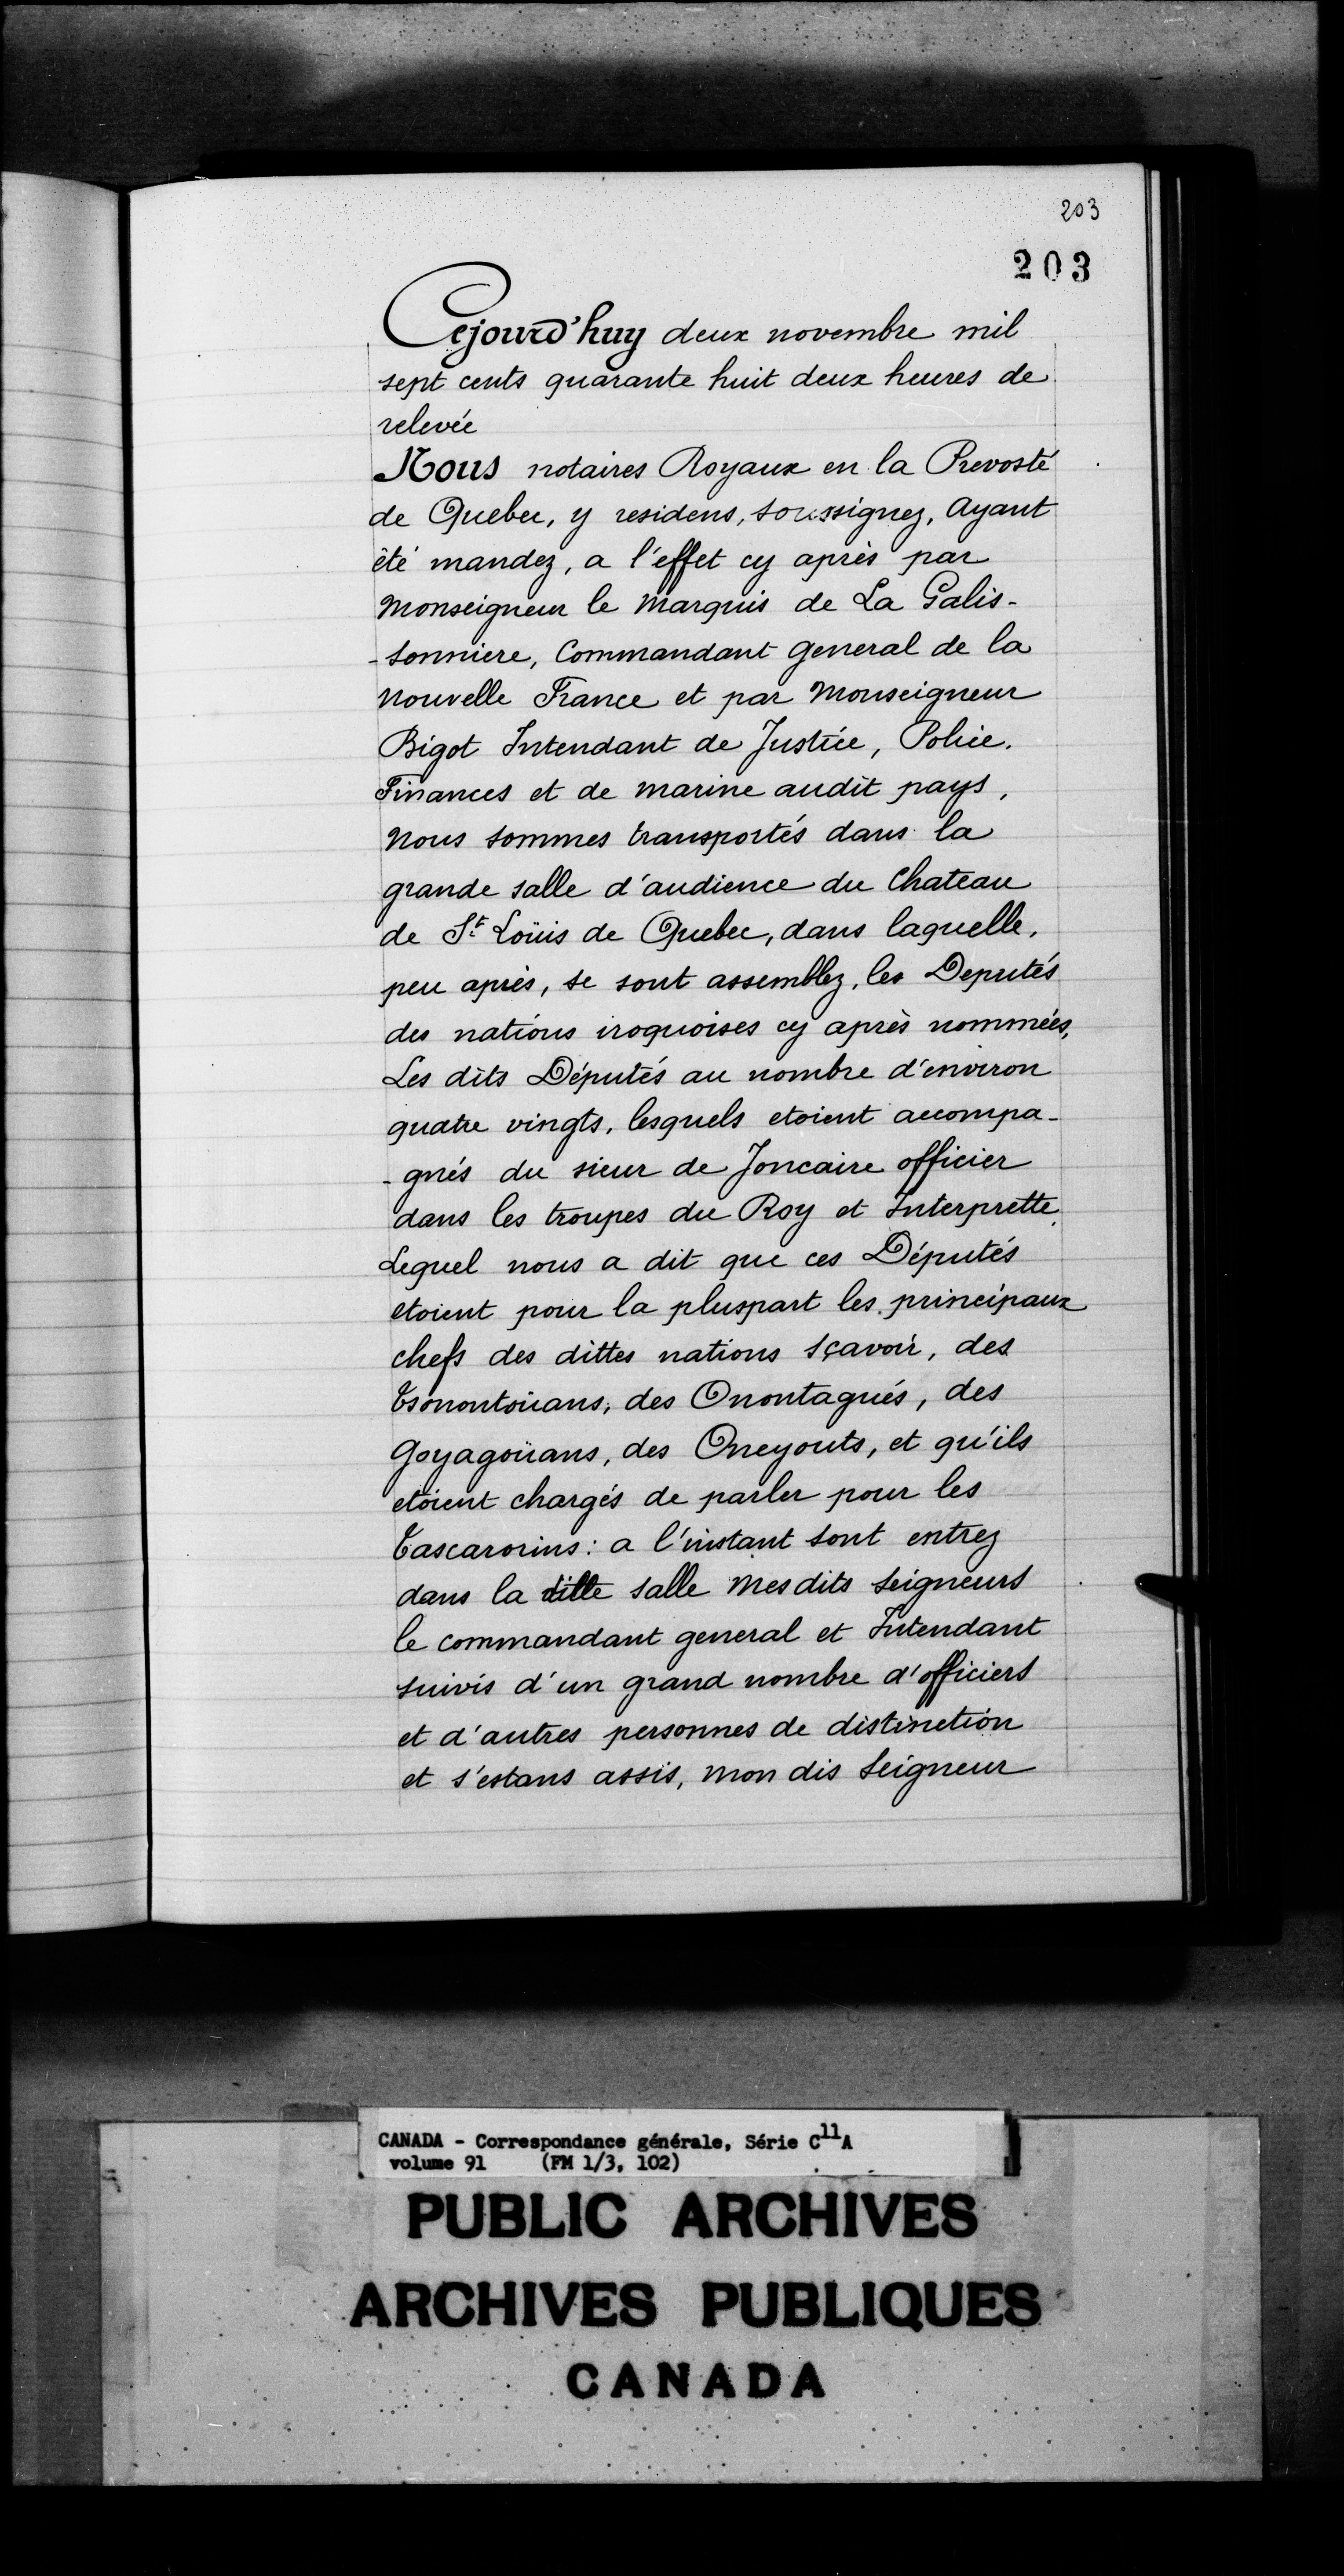 203
203
Cejourd'huy deux novembre mil
sept cents quarante huit deux heures de
relevée
Nous notaires Royaux en la Prevosté
de Quebec, y residens, soussignez, Ayant
êté mandez, a l'effet cy après par
Monseigneur le Marquis de La Galis-
-sonniere, Commandant General de la
Nouvelle France et par Monseigneur
Bigot Intendant de Justice, Police,
Finances et de Marine audit pays,
Nous sommes transportés dans la
grande salle d'audience du Chateau
de St Loüis de Quebec, dans laquelle,
peu après, se sont assemblez, les Deputés
des nations iroquoises cy après nommées,
Les dits Députés au nombre d'environ
quatre vingts, lesquels etoient accompa-
-gnés du sieur de Joncaire officier
dans les troupes du Roy et Interprette,
Lequel nous a dit que ces Députés
etoient pour la pluspart les principaux
chefs des dittes nations sçavoir, des
Tsonontoüans, des Onontagués, des
Goyagoüans, des Oneyouts, et qu'ils
etoient chargés de parler pour les
Tascarorins: a l'instant sont entrez
dans la ditte salle Mesdits Seigneurs
le commandant general et Intendant
suivis d'un grand nombre d'officiers
et d'autres personnes de distinction
et s'estans assis, Mon dis Seigneur
CANADA - Correspondance générale, Série C11A
volume 91 (FM 1/3, 102)
PUBLIC ARCHIVES
ARCHIVES PUBLIQUES
CANADA